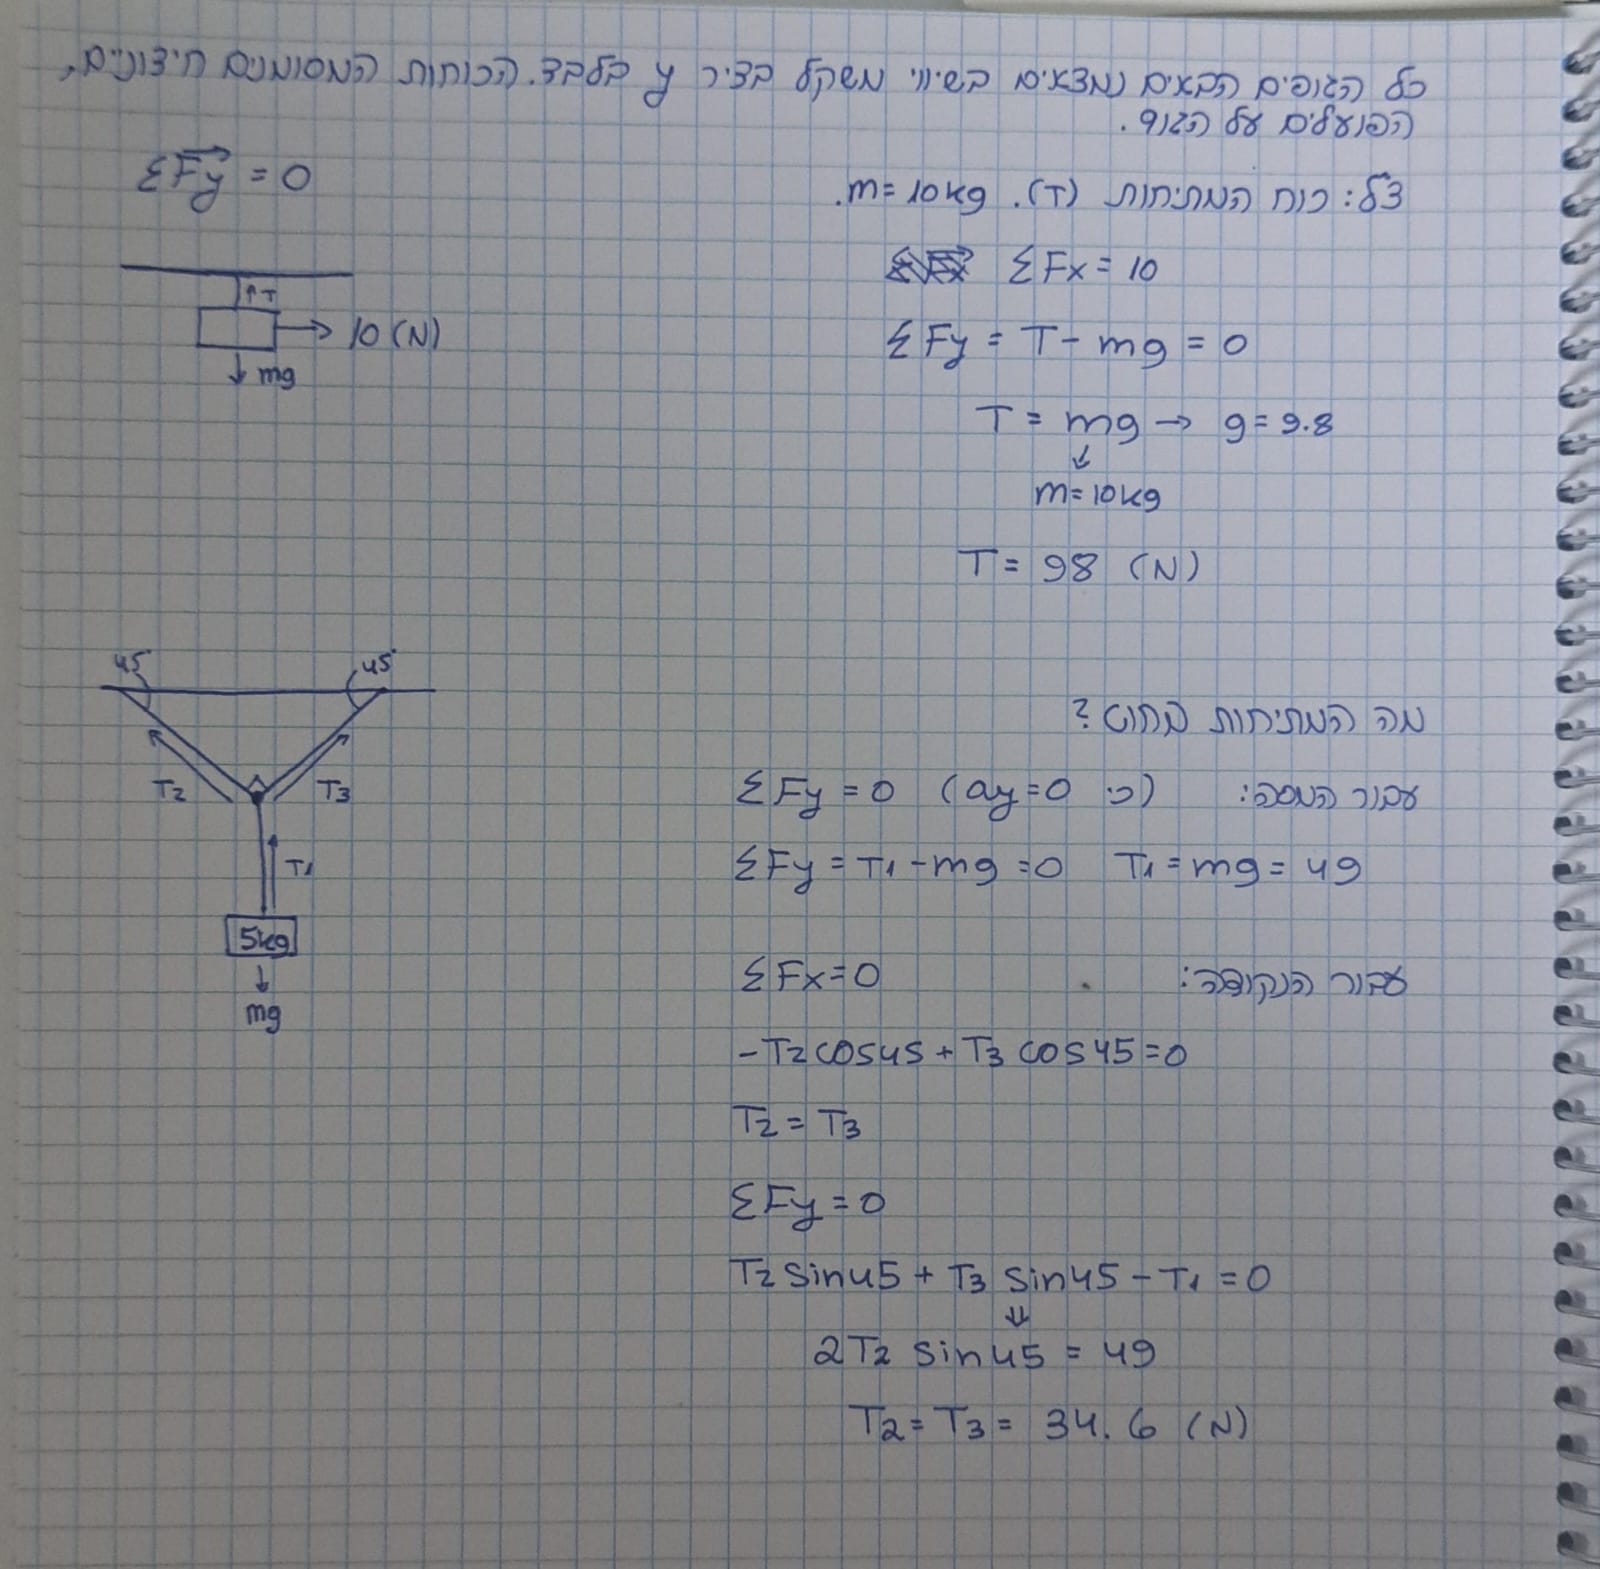 כל הגופים הבאים נמצאים בשיווי משקל בציר y בלבד. הכוחות המסומנים חיצוניים,
הפועלים על הגוף.
ΣFy = 0
צ"ל: כוח המתיחות (T). m=10kg.
ΣFx = 10
↑T
10 (N)
↓ mg
ΣFy = T - mg = 0
T = mg → g = 9.8
↓
m=10kg
T = 98 (N)
45°
45°
T2
T3
T1
5kg
↓
mg
מה המתיחות בחוט?
עבור המסה: ΣFy = 0 (כי ay=0)
ΣFy = T1 - mg = 0 T1 = mg = 49
עבור הנקודה: ΣFx=0
-T2cos45 + T3 cos45=0
T2 = T3
ΣFy = 0
T2 sin45 + T3 sin45 - T1 = 0
⇓
2T2 sin45 = 49
T2 = T3 = 34.6 (N)